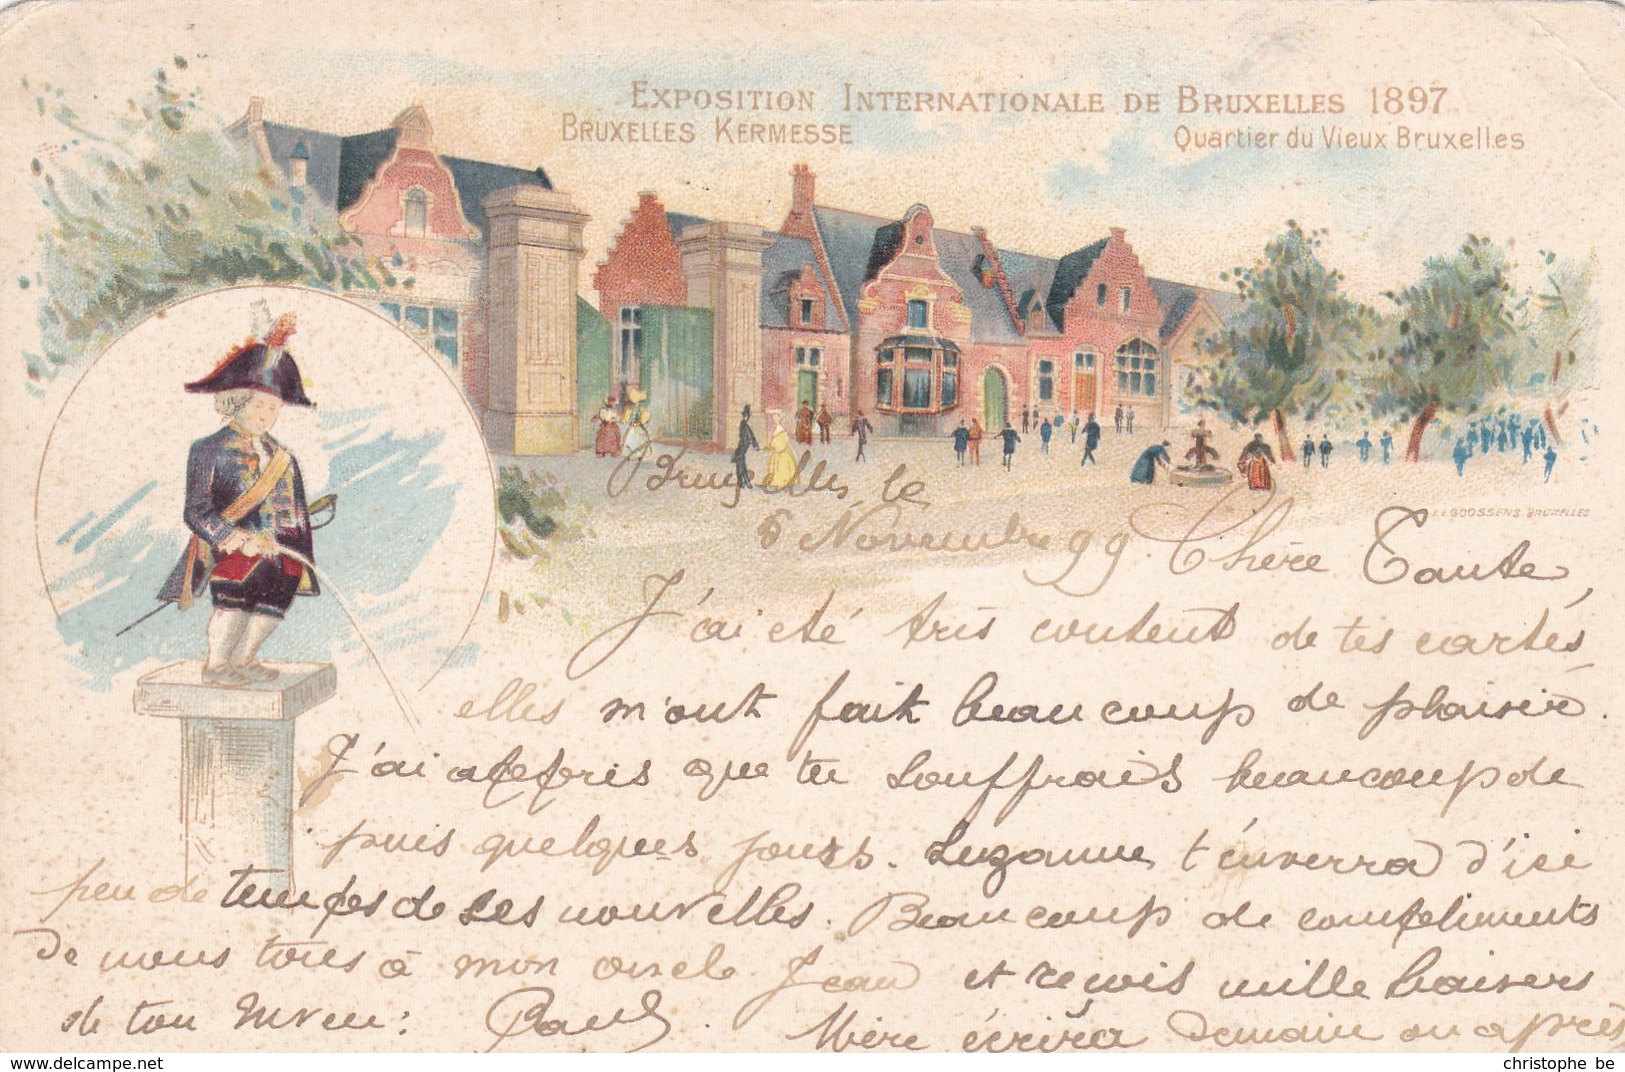 EXPOSITION INTERNATIONALE DE BRUXELLES 1897
BRUXELLES KERMESSE
Quartier du Vieux Bruxelles
J.L GOOSSENS. BRUXELLES
Bruxelles, le
6 Novembre 99. Chère Tante,
J'ai été très content de tes cartes,
elles m'ont fait beaucoup de plaisir.
J'ai appris que tu souffrais beaucoup de
puis quelques jours. Suzanne t'enverra d'ici
peu de temps de ses nouvelles. Beaucoup de compliments
de nous tous à mon oncle Jean et reçois mille baisers
de ton neveu: Paul. Mère écrira demain ou après
delcampe.net
christophe be